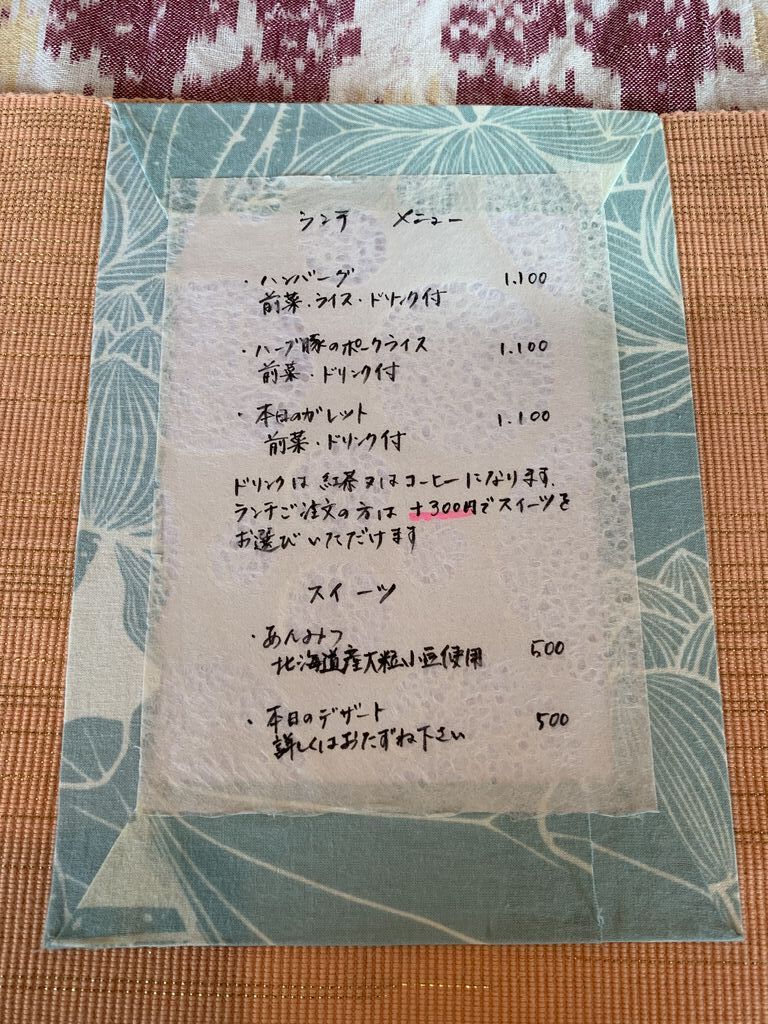 ランチ メニュー
・ハンバーグ 1.100
前菜・ライス・ドリンク付
・ハーブ豚のポークライス 1.100
前菜・ドリンク付
・本日のガレット 1.100
前菜・ドリンク付
ドリンクは紅茶又はコーヒーになります.
ランチご注文の方は +300円でスイーツを
お選びいただけます
スイーツ
・あんみつ 500
北海道産大粒小豆使用
・本日のデザート 500
詳しくはおたずね下さい